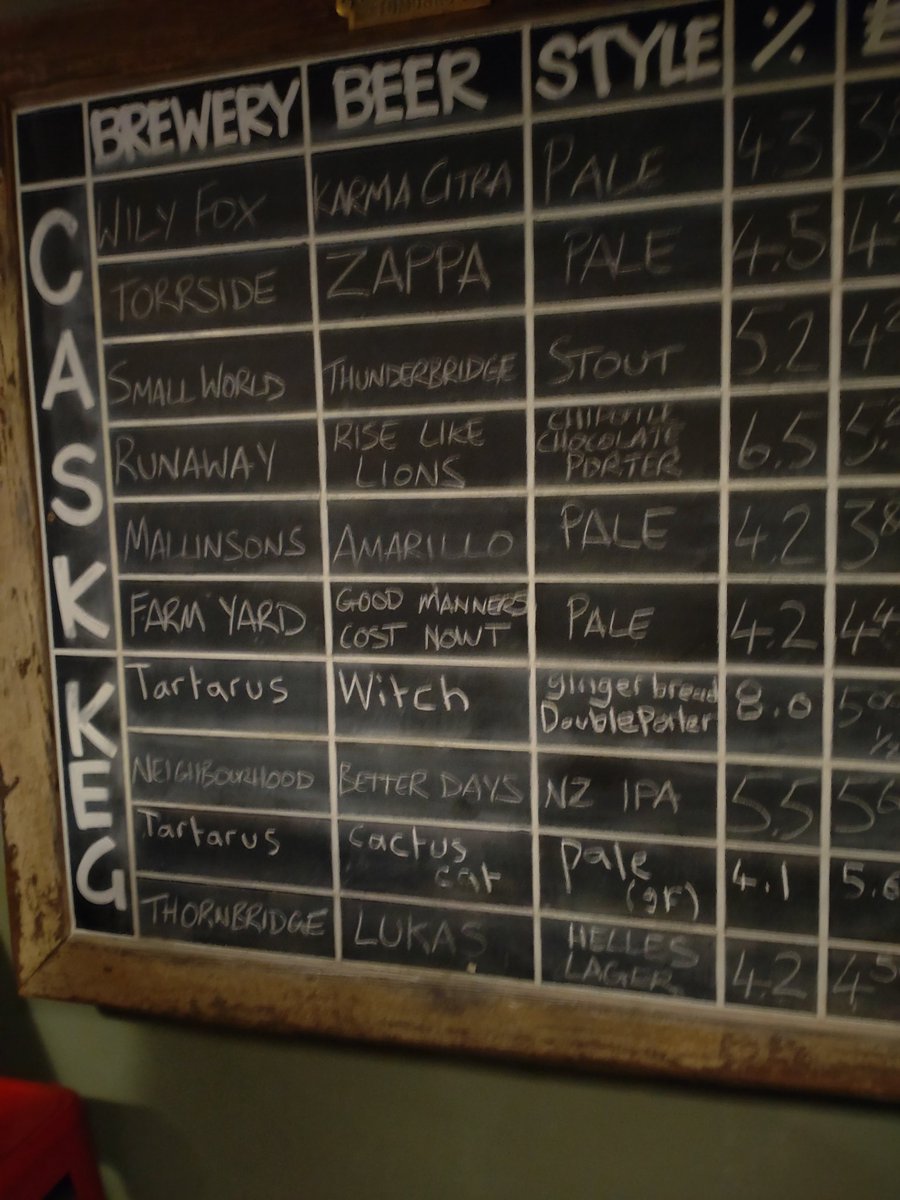 BREWERY BEER STYLE % £
CASK
WILY FOX KARMA CITRA PALE 4.3
TORRSIDE ZAPPA PALE 4.5
SMALL WORLD THUNDERBRIDGE STOUT 5.2
RUNAWAY RISE LIKE LIONS CHIPOTLE CHOCOLATE PORTER 6.5
MALLINSONS AMARILLO PALE 4.2
FARM YARD GOOD MANNERS COST NOWT PALE 4.2
KEG
Tartarus Witch gingerbread Double Porter 8.0 ½
NEIGHBOURHOOD BETTER DAYS NZ IPA 5.5
Tartarus cactus cat pale (gf) 4.1 5.6
THORNBRIDGE LUKAS HELLES LAGER 4.2